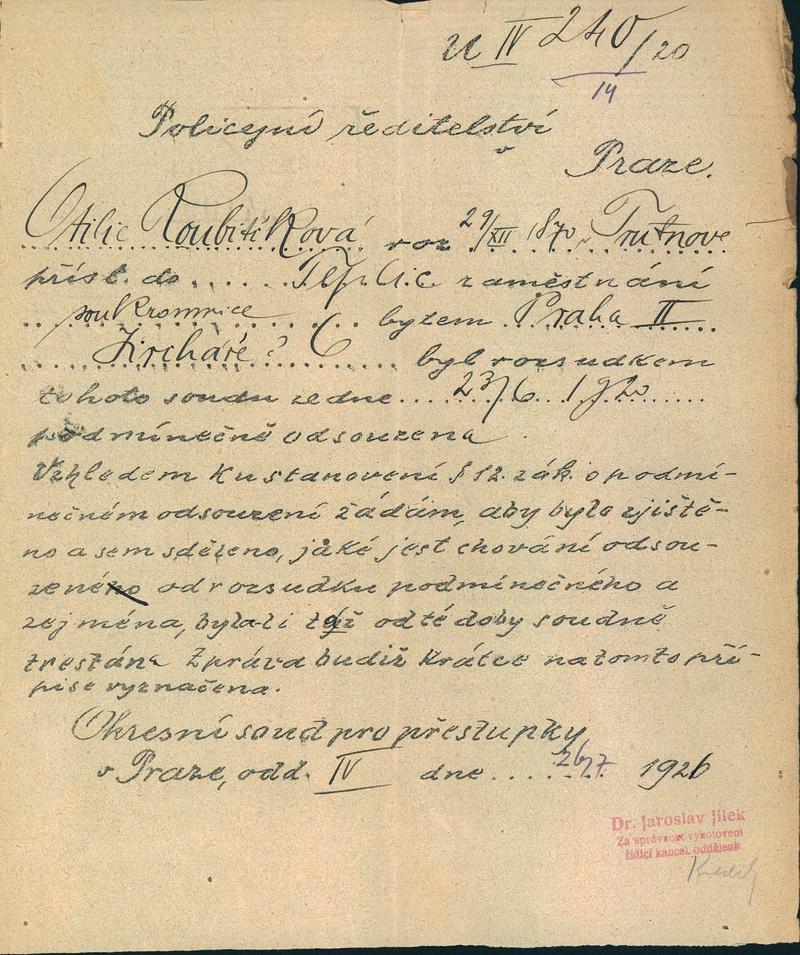 U IV 240/20
14
Policejní ředitelství
v Praze.
Otilie Roubitíková nar 29/XII 1870 v Trutnově
přísl. do ..... Teplic. zaměstnání
soukromnice bytem Praha II
Jircháře č 6 byl rozsudkem
tohoto soudu ze dne .... 23/6 1920 .......
podmínečně odsouzena.
Vzhledem k ustanovení § 12. zák. o podmí-
nečném odsouzení žádám, aby bylo zjiště-
no a sem sděleno, jaké jest chování odsou-
zené od rozsudku podmínečného a
zejména, byla-li též od té doby soudně
trestána Zpráva budiž krátce na tomto pří-
pise vyznačena.
Okresní soud pro přestupky
v Praze, odd. IV dne .... 26/7 1926
Dr. Jaroslav Jílek
Za správnost vyhotovení
řídící kancel. oddělení: